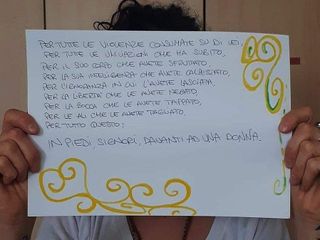 PER TUTTE LE VIOLENZE CONSUMATE SU DI LEI,
PER TUTTE LE UMILIAZIONI CHE HA SUBITO,
PER IL SUO CORPO CHE AVETE SFRUTTATO,
PER LA SUA INTELLIGENZA CHE AVETE CALPESTATO,
PER L'IGNORANZA IN CUI L'AVETE LASCIATA,
PER LA LIBERTÀ CHE LE AVETE NEGATO,
PER LA BOCCA CHE LE AVETE TAPPATO,
PER LE ALI CHE LE AVETE TAGLIATO,
PER TUTTO QUESTO:
IN PIEDI SIGNORI, DAVANTI AD UNA DONNA.